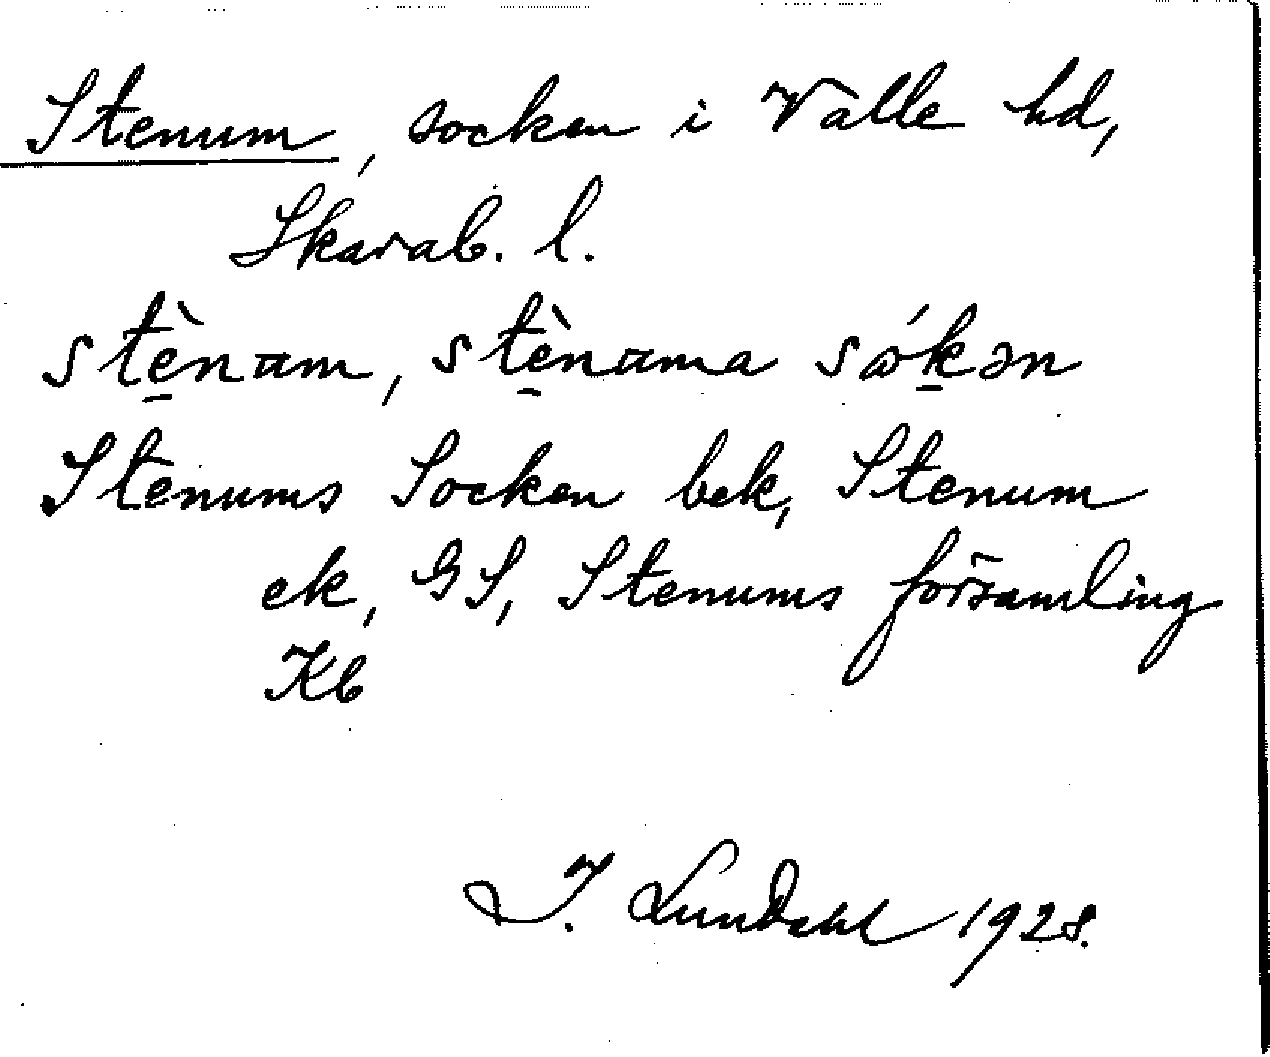 Stenum, socken i Valle hd,
Skarab. l.
stè̠nam, stè̠nama sɷ́k̠ən
Stenums Socken bek, Stenum
ek, GS, Stenums församling
Kb
I. Lundahl 1928.